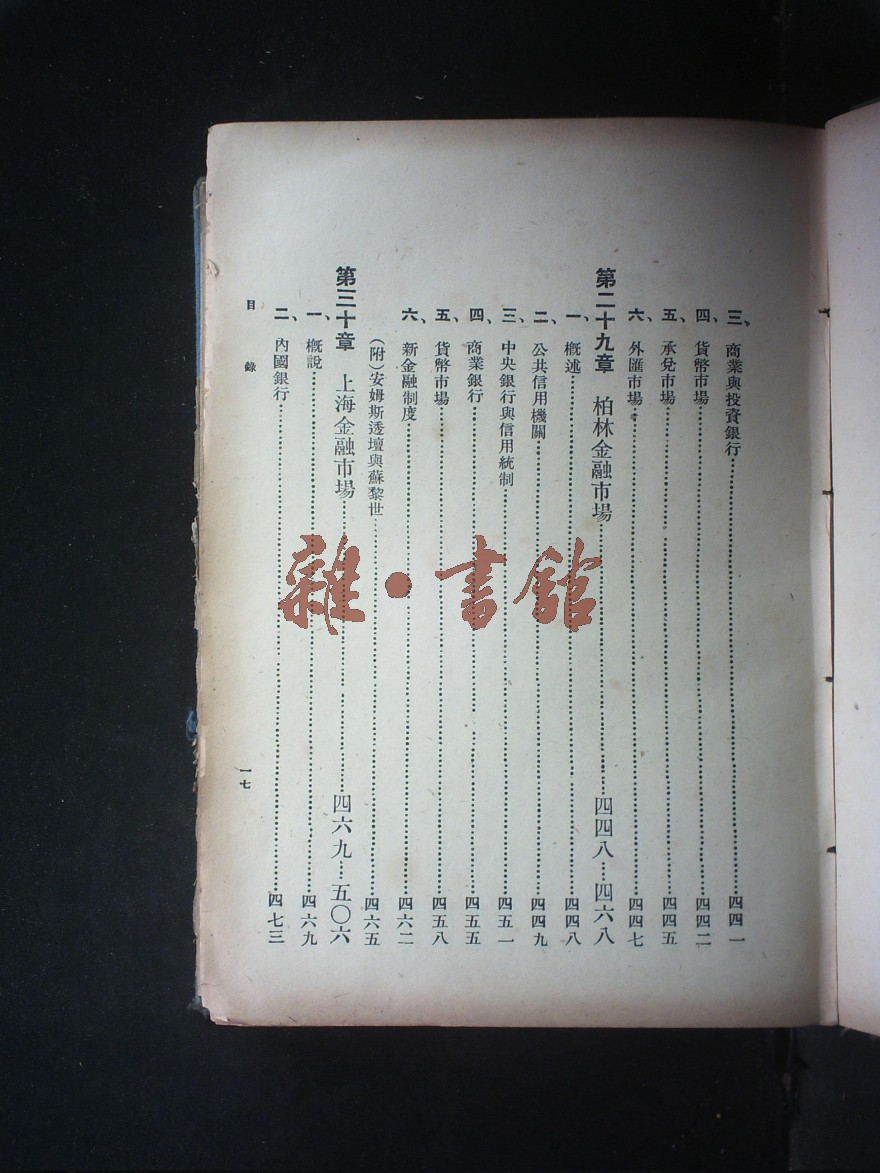 三、商業與投資銀行……四四一
四、貨幣市場……四四二
五、承兌市場……四四五
六、外匯市場……四四七
第二十九章 柏林金融市場……四四八…四六八
一、概述……四四八
二、公共信用機關……四四九
三、中央銀行與信用統制……四五一
四、商業銀行……四五五
五、貨幣市場……四五八
六、新金融制度……四六二
(附)安姆斯透壇與蘇黎世……四六五
第三十章 上海金融市場……四六九…五〇六
一、概說……四六九
二、內國銀行……四七三
目錄
一七
雜·書館